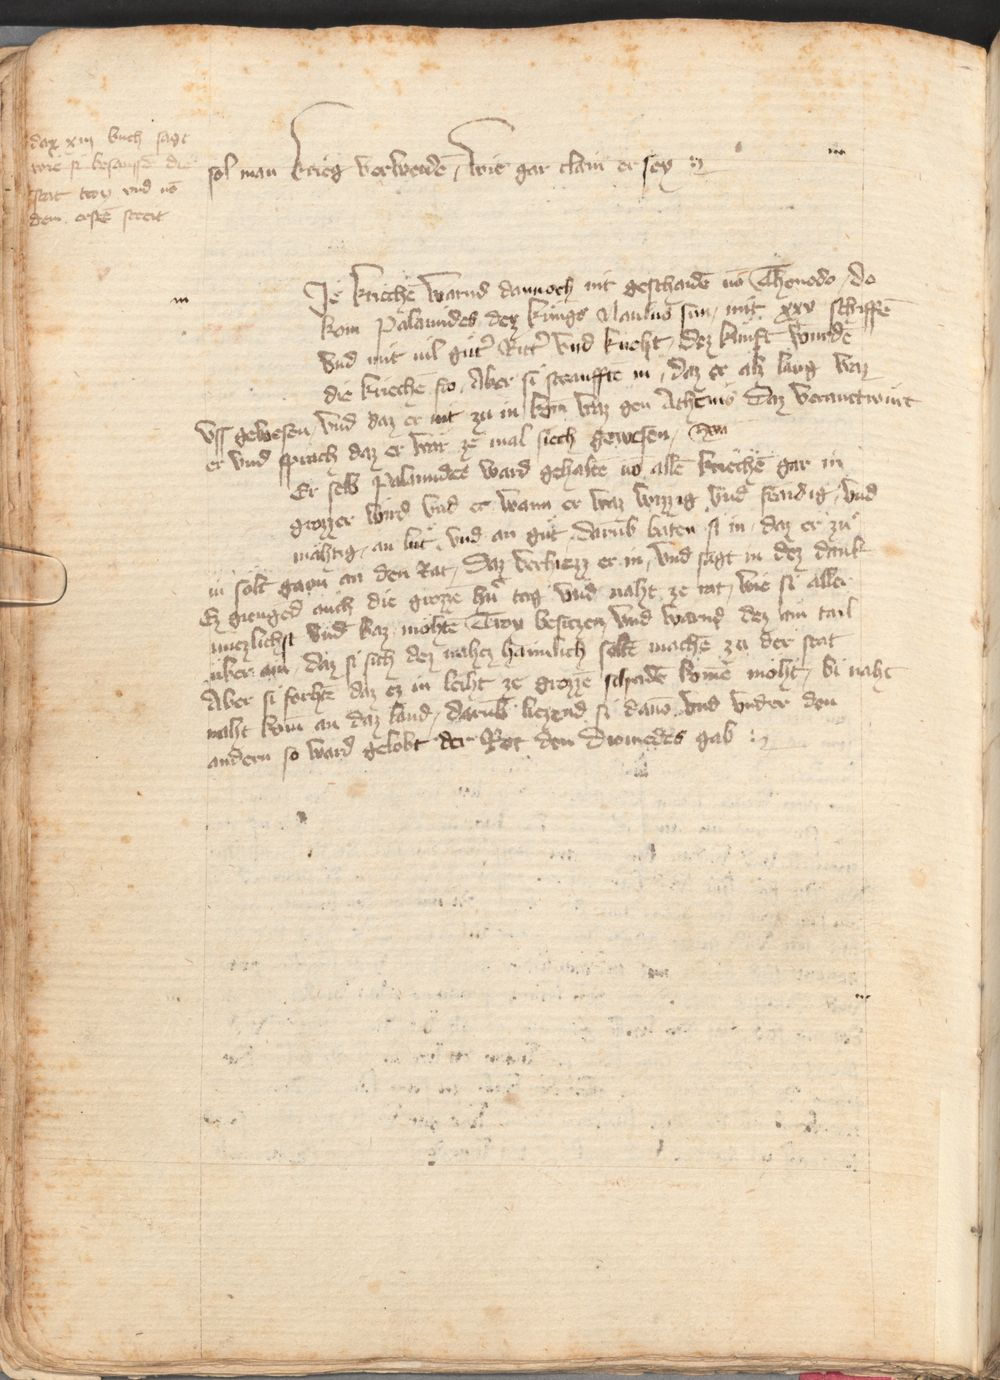 daz xiii buch sagt
wie si besanssē die
stat troy vnd uō
dem erstē streit
sol man krieg vermeidē, wie gar clain er sey
Je kriechē warnd dannoch nit geschaidē uō Thenedo, do
kom Palamides dez kunigs Naulus sun, mit xxv schiffē
vnd mit uil gůt' Ritt' vnd kneht, dez kunft wurdē
die kriechē fro, Aber si strauffte in, daz er alz lang waz
uss gewesen, vnd daz er nit zu in kom waz gen Athenis Daz verantwurt
er vnd sprach daz er wär ze mal siech gewesen,
Er selb Palamides ward gehaltē uō allē kriechē gar in
grozzer wird vnd er wann er waz wizzig vnd fraidig, vnd
mähtig, an lut, vnd an gůt, darūb baten si in, daz er zů
in sölt gaun an den Rat, Daz verhiezz er in, vnd sagt in dez dank
Ez giengend auch die grozzē hrē tag vnd naht ze rat, wie si aller
nutzlichst vnd baz möhtē Troy besitzen vnd warnd dez ain tail
über ain, daz si sich dez nahez haimlich söltē machē zu der stat
Aber si forhtē daz ez in leiht ze grozzē schadē komē möht, bi naht
naht kom an daz land, darūb liezend si dauō vnd vnder den
andern so ward gelobt der Rat den Diomedes gab